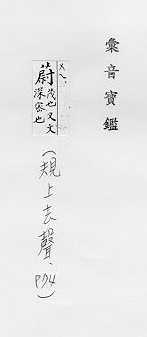 彙音寶鑑
蔚 茂也又文
深密也
(規上去聲、P74)